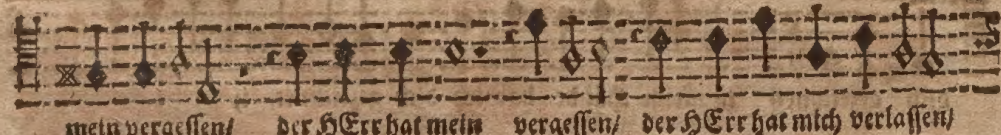 mein vergessen/ der HErr hat mein vergessen/ der HErr hat mich verlassen/